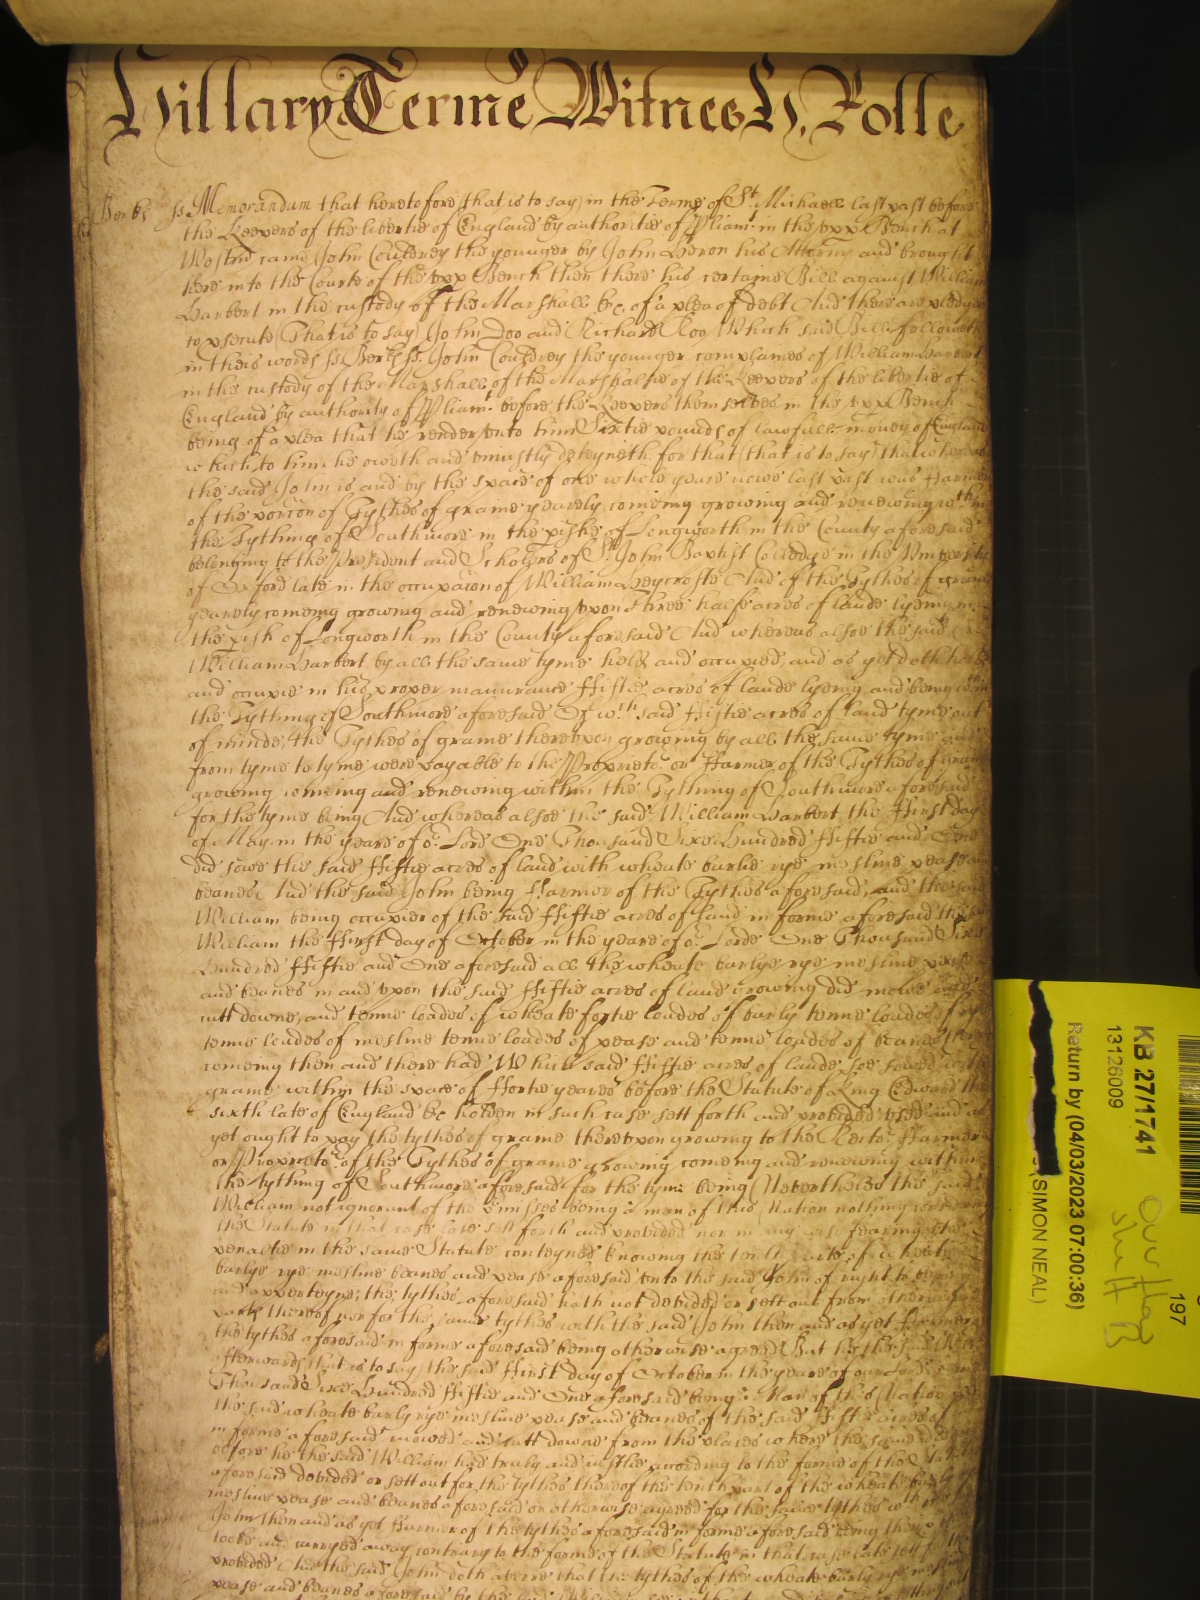 Hillary Terme Witnes H. Rolle
Berks ss Memorandum that heretofore (that is to say) in the Terme of St. Michaell last past before
the Keepers of the libertie of England by authoritie of Pliamt. in the upp Bench at
Westmr came John Couldrey the younger by John Heron his Attorny and brought
here into the Courte of the upp Bench then there his certaine Bill against William
Harbert in the custody of the Marshall &c. of a plea of debt And there are pledges
to psecute (That is to say) John Doo and Richard Roo Which said Bill followeth
in theis words ss Berks ss. John Couldrey the younger complaines of William Harbert
in the custody of the Marshall of the Marshalsie of the Keepers of the libertie of
England by authority of Pliamt. before the Keepers themselves in the upp Bench
being of a plea that he render unto him Sixtie pounds of lawfull money of England
which to him he oweth and uniustly deteyneth for that (that is to say) that whereas
the said John is and by the space of one whole yeare nowe last past was Farmer
of the porcion of Tythes of graine yearely comeing growing and renewing wth in
the Tything of Southmore in the pishe of Longworth in the County aforesaid
belonging to the President and Schollers of St. John Baptist Colledge in the University
of Oxford late in the occupacion of William Heycrofte And of the Tythes of graine
yearely comeing growing and renewing upon Three halfe acres of lande lyeing in
the pish of Longworth in the County aforesaid And whereas alsoe the said
William Harbert by all the same tyme held and occupied and as yet doth hold
and occupie in his proper manurance ffiftie acres of lande lyeing and being wth in
the Tything of Southmore aforesaid Of wch said ffiftie acres of land tyme out
of minde, the Tythes of graine thereupon growing by all the same tyme and
from tyme to tyme were payable to the Proprietor or ffarmer of the Tythes of graine
growing comeing and renewing within the Tything of Southmore aforesaid
for the tyme being And whereas alsoe the said William Harbert the ffirst day
of May in the yeare of or. Lord One Thousand Sixe Hundred ffiftie and One
did sowe the said ffiftie acres of land with wheate barlie rye mesline pease and
beanes And the said John being ffarmor of the Tythes aforesaid, and the said
William being occupier of the said ffiftie acres of land in forme aforesaid the said
William the ffirst day of October in the yeare of or. Lorde One Thousand Sixe
Hundred ffiftie and One aforesaid all the wheate barlye rye mesline pease
and beanes in and upon the said ffiftie acres of land growing did mowe and
cutt downe, and tenne loades of wheate fortie loades of barly tenne loades of rye
tenne loades of mesline tenne loades of pease and tenne loades of beanes
comeing then and there had Which said ffiftie acres of lande soe sowed with
graine within the space of ffortie yeares before the Statute of King Edward the
sixth late of England &c holden in such case sett forth and provided used and as
yet ought to pay the tythes of graine thereupon growing to the Rector ffarmer
or Proprietor. of the Tythes of graine growing comeing and renewing within
the tything of Southmore aforesaid for the tyme being (Neverthelesse the said
William not ignorant of the pmisses being a man of this Nation nothing
the Statute in that case late sett forth and provided nor in any wise fearing the
penaltie in the same Statute conteyned knowing the tenth parte of wheate
barlye rye mesline beanes and pease aforesaid unto the said John of right to belong
and apperteyne, the tythes aforesaid hath not devided or sett out from other
parte thereof nor for the same tythes with the said John then and as yet ffarmer
the tythes aforesaid in forme aforesaid being otherwise agreed But he the said William
afterwards that is to say the said ffirst day of October in the yeare of our Lord One
Thousand Sixe Hundred ffiftie and One aforesaid being a Man of this Nation
the said wheate barly rye mesline pease and beanes of the said ffiftie acres of
in forme aforesaid mowed and cutt downe from the places where the same
before he the said William had truly and iustlie according to the forme of the Statute
aforesaid devided or sett out for the tythes thereof the tenth part of the wheate barly
mesline pease and beanes aforesaid or otherwise agreed for the same tythes with
John then and as yet ffarmer of the tythes aforesaid in forme aforesaid being then
tooke and carryed away contrary to the forme of the Statute in that case late sett forth
provided And the said John doth averre that the tythes of the wheate barly rye mesline
pease and beanes aforesaid by the said William
KB 27/1741
13126009
Return by (04/03/2023 07:00:36)
SIMON NEAL)
197